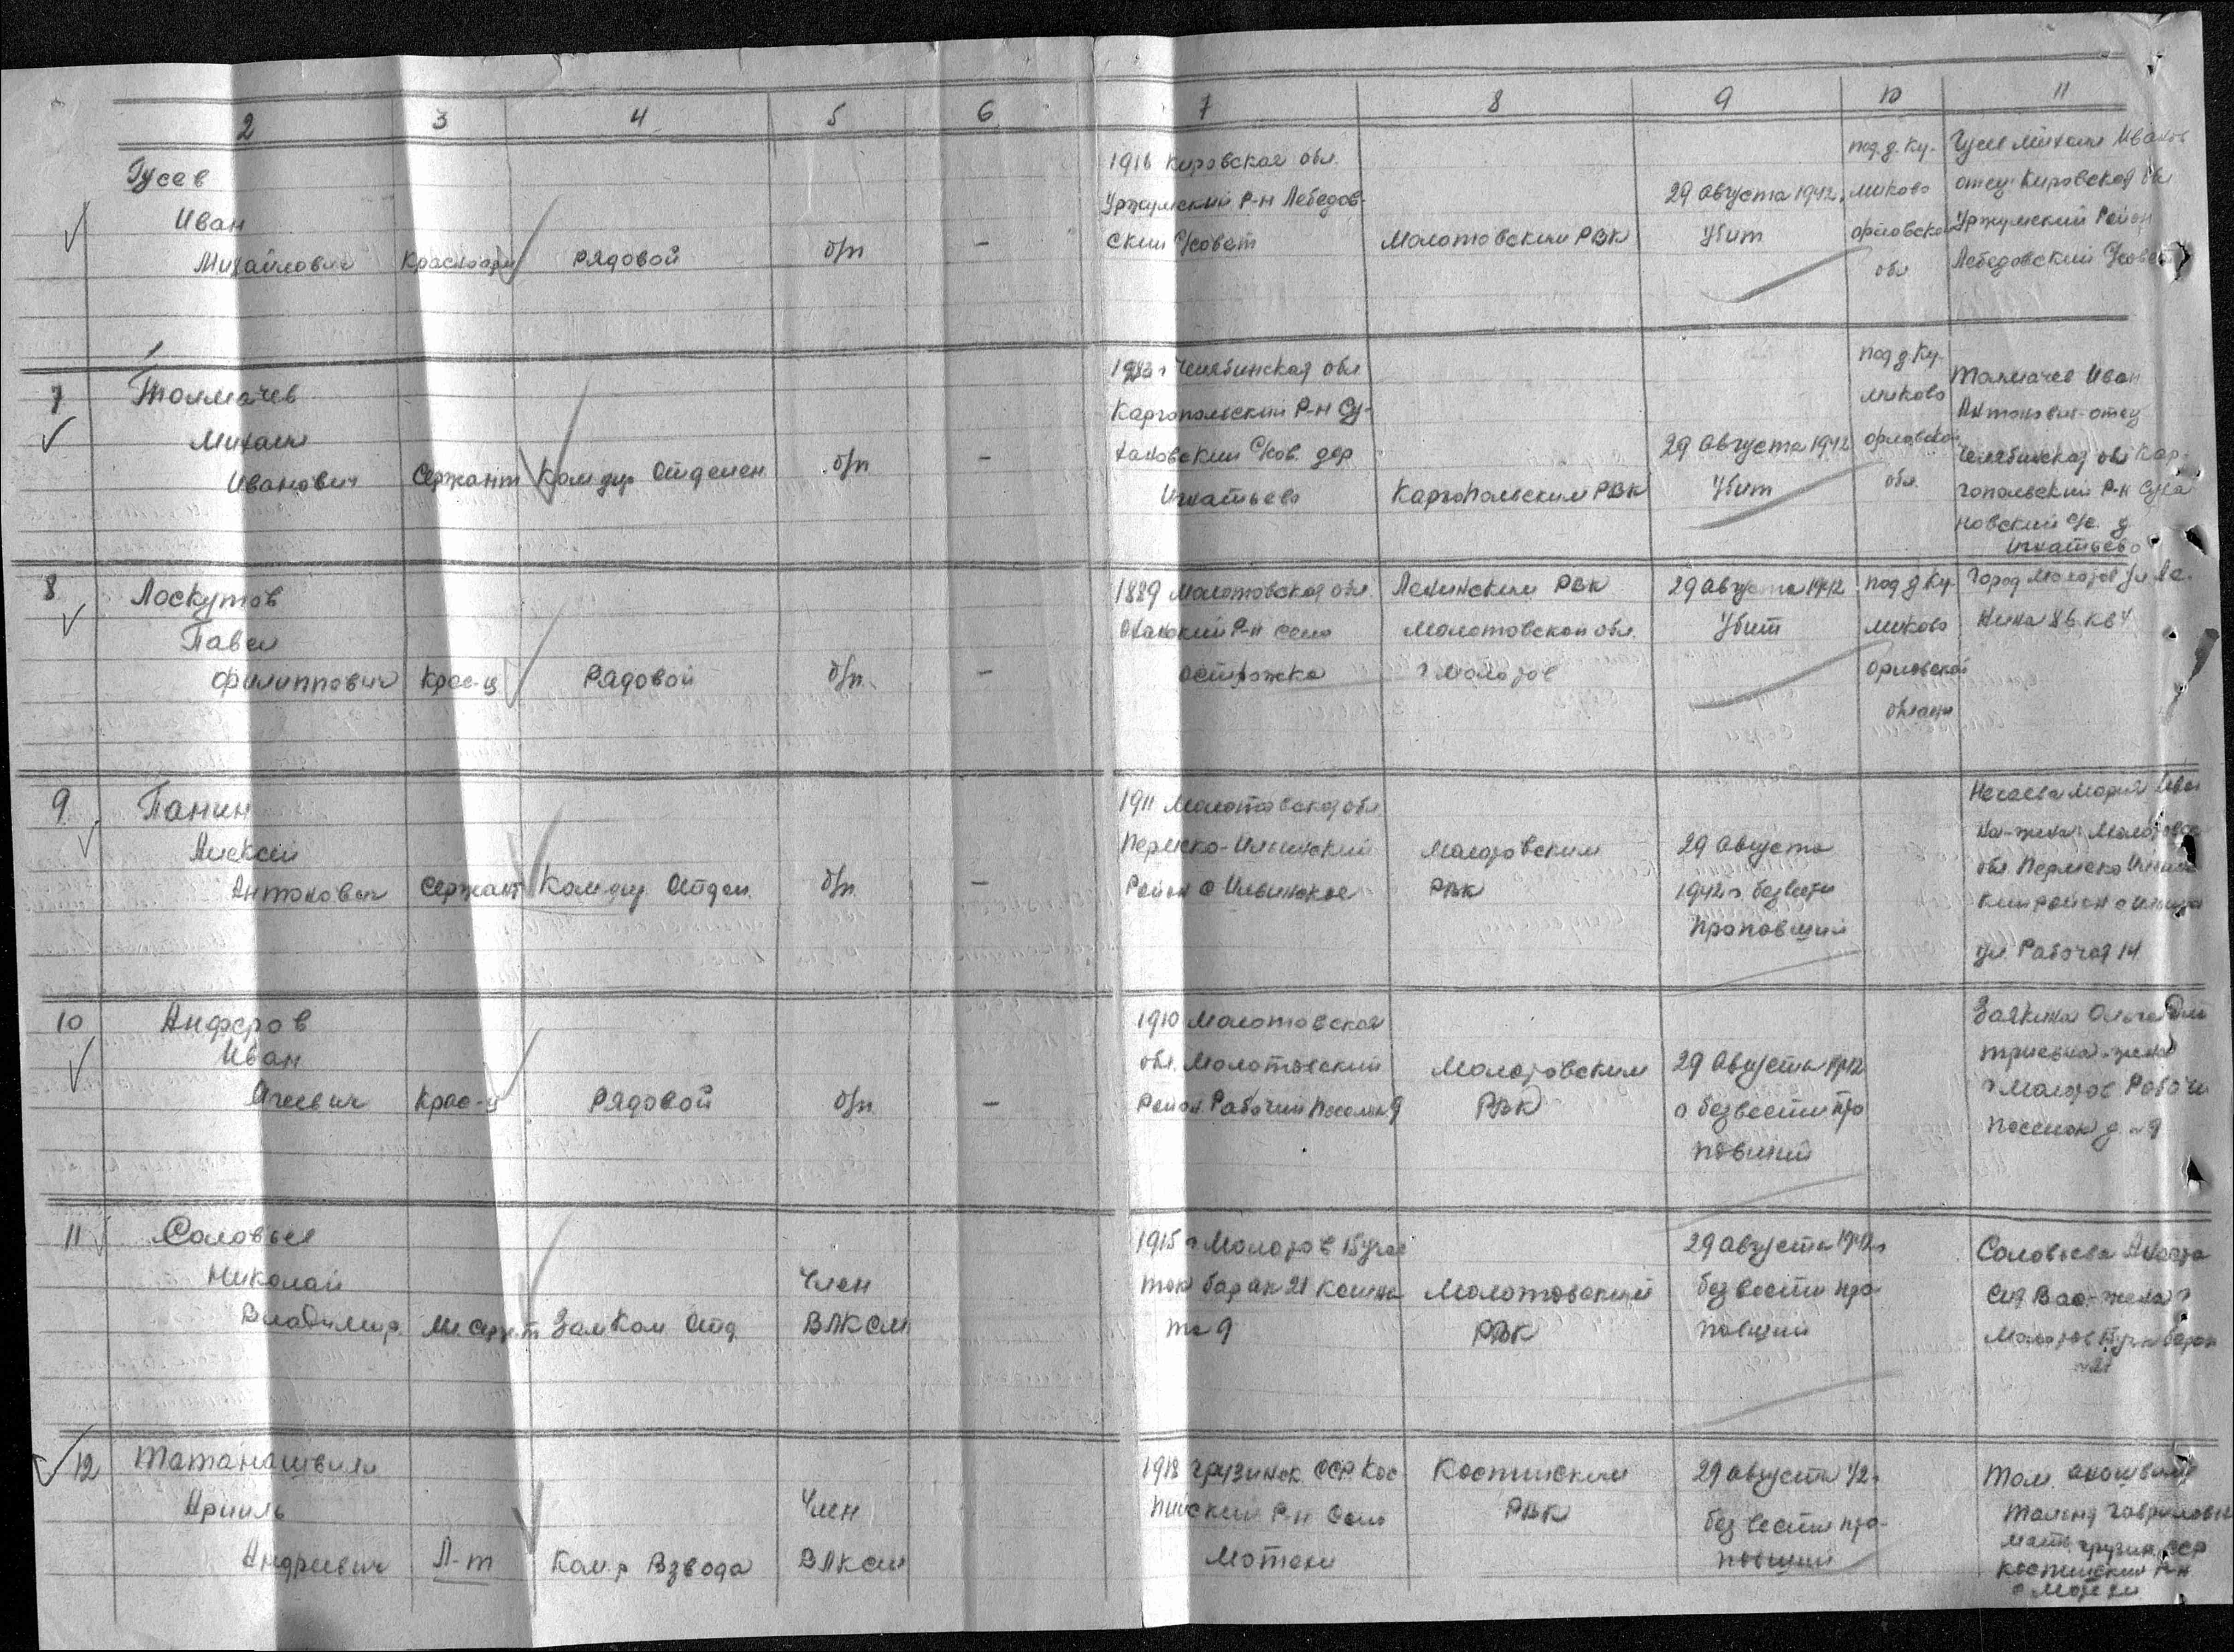 2 3 4 5 6 7 8 9 10 11
Гусев
Иван
Михайлович
Красноарм
Рядовой
б/п
-
1916 Кировская обл.
Уржумский Р-н Лебедов-
ский С/совет
Молотовским РВК
29 Августа 1942г
Убит
под д. Ку-
миково
орловской
обл
Гусев Михаил Иванов
отец Кировская обл
Уржумский Район
Лебедовский С/совет
7
Толмачев
Михаил
Иванович
Сержант
Комдир Отделен
б/п
-
Челябинская обл
Каргопольский Р-н Су-
хановский С/сов. дер
Игнатьево
Каргопольским РВК
29 Августа 1942
Убит
под д Ку-
миково
орловской
обл.
Толмачев Иван
Антонович-отец
Челябинская обл Кар-
гопольский Р-н Суха
новский с/с. д
Игнатьево
8
Лоскутов
Павел
Филиппович
Крас-ц
Рядовой
б/п.
-
1889 Молотовская обл.
Оханский Р-н село
Острожка
Ленинским РВК
Молотовской обл.
г Молотов
29 Августа 1942
Убит
под д Ку-
миково
орловской
области
Город Молотов ул Ле-
нина 86 кв 4
9
Панин
Алексей
Антонович
Сержант
Комдир Отдел.
б/п
-
1911 Молотовская обл
Пермско-Ильинский
Район с Ильинское
Молотовским
РВК
29 Августа
1942г безвести
пропавший
Нечаева Мария Иван
на-жена Молотовск
обл. Пермско Ильинс
кий район с Ильин
ул. Рабочая 14
10
Анферов
Иван
Агеевич
Крас-ц
Рядовой
б/п
-
1910 Молотовская
обл. Молотовский
Район Рабочий Поселок 9
Молотовским
РВК
29 Августа 1942
г безвести про
павший
Заякина Ольга Дми
триевна-жена
г Молотов Рабочи
поселок д №9
11
Соловьев
Николай
Владимир.
Мл. серж-т
Зам Ком Отд
Член
ВЛКСМ
1915 г Молотов 15 учас
ток барак 21 комна
та 9
Молотовский
РВК
29 Августа 1942г
безвести про-
павший
Соловьева Анаста
сия Вас.-жена г
Молотов уч-к барак
№21
12
Татанашвили
Арпиль
Андреевич
Л-т
Ком-р Взвода
Член
ВЛКСМ
1918 Грузинск. ССР. Кас-
пийский Р-н Село
Мотехи
Каспийским
РВК
29 августа 42г
без вести про-
павший
Гавриловна
мать грузин. ССР
Каспийский Р-н
с Мотехи